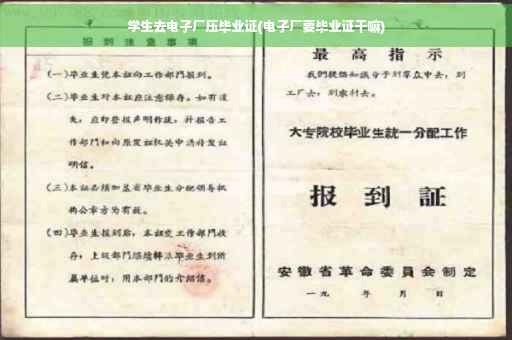 学生去电子厂压毕业证(电子厂要毕业证干嘛)
报到注意事项
(一)毕业生凭本证向工作部门报到。
(二)毕业生对本证应注意保存。如有遗
失，应即登报声明作废，并报告工
作部门和向原发证机关申请补发证
明信。
(三)本证必须加盖省毕业生分配领导机
构公章方为有效。
(四)毕业生报到后，本证交工作部门收
存；上级部门
属单位时，用本部门的介绍信。
最高指示
我们提倡知识分子到群众中去，到
工厂去，到农村去。
大专院校毕业生统一分配工作
报到証
安徽省革命委員会制定
一九 年 月 日